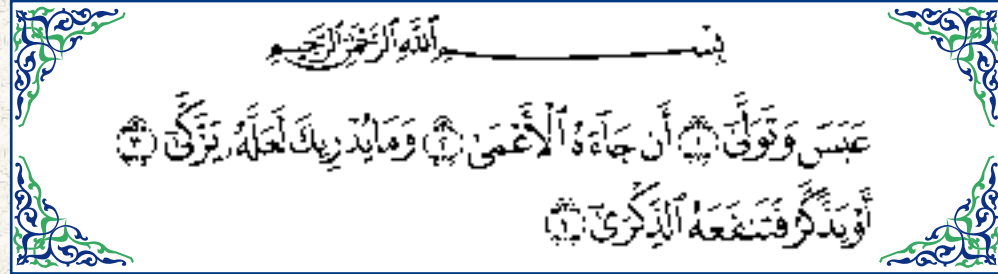 بِسْمِ ٱللَّهِ ٱلرَّحْمَٰنِ ٱلرَّحِيمِ
عَبَسَ وَتَوَلَّىٰٓ ۝١ أَن جَآءَهُ ٱلْأَعْمَىٰ ۝٢ وَمَا يُدْرِيكَ لَعَلَّهُۥ يَزَّكَّىٰٓ ۝٣
أَوْ يَذَّكَّرُ فَتَنفَعَهُ ٱلذِّكْرَىٰٓ ۝٤